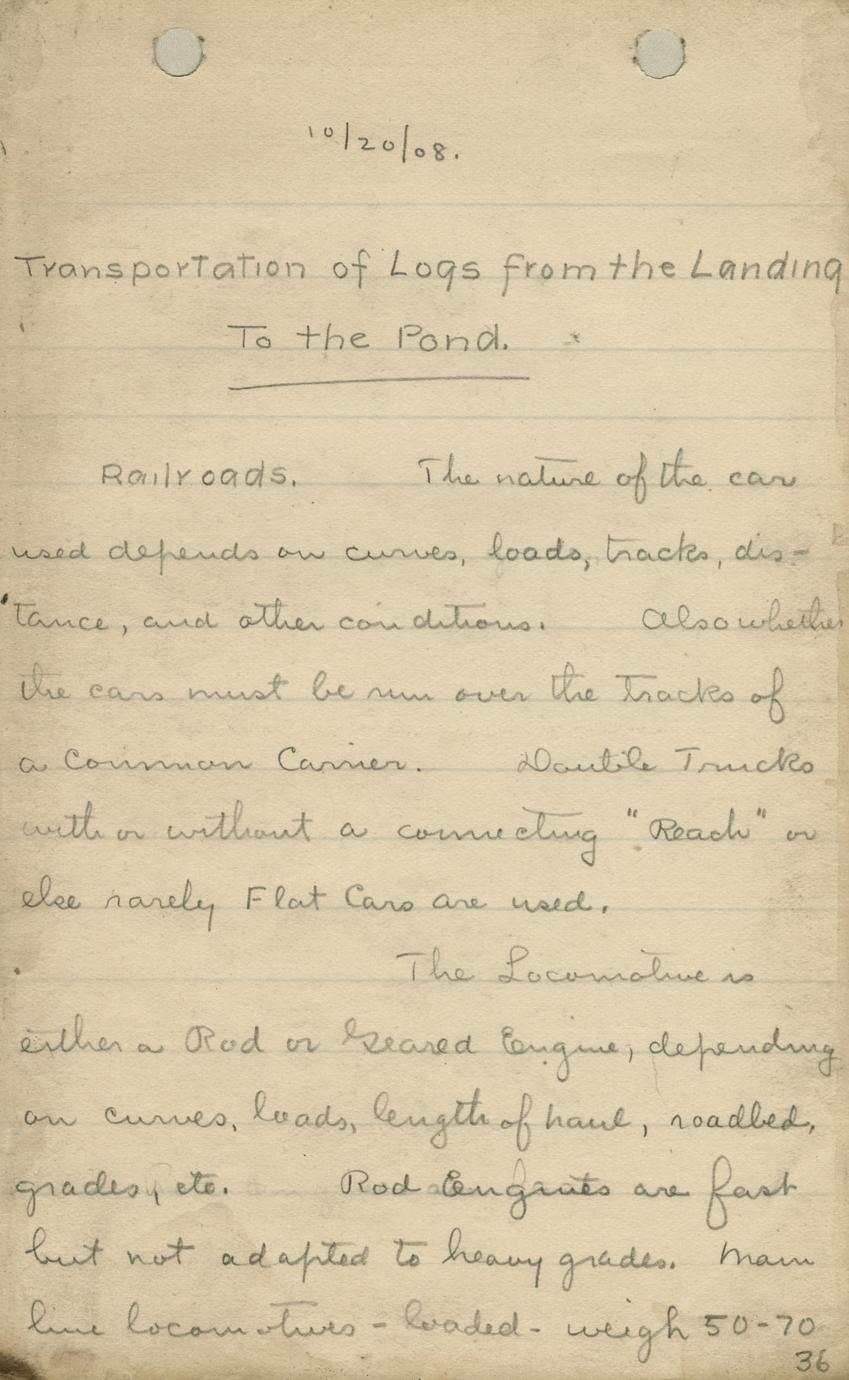 10/20/08.
Transportation of Logs from the Landing
To the Pond.
Railroads. The nature of the car
used depends on curves, loads, tracks, dis-
tance, and other conditions. Also whether
the cars must be run over the tracks of
a Common Carrier. Double Trucks
with or without a connecting "Reach" or
else rarely Flat Cars are used.
The Locomotive is
either a Rod or Geared Engine, depending
on curves, loads, length of haul, roadbed,
grades, etc. Rod Engines are fast
but not adapted to heavy grades. Main
line locomotives - loaded - weigh 50-70
36